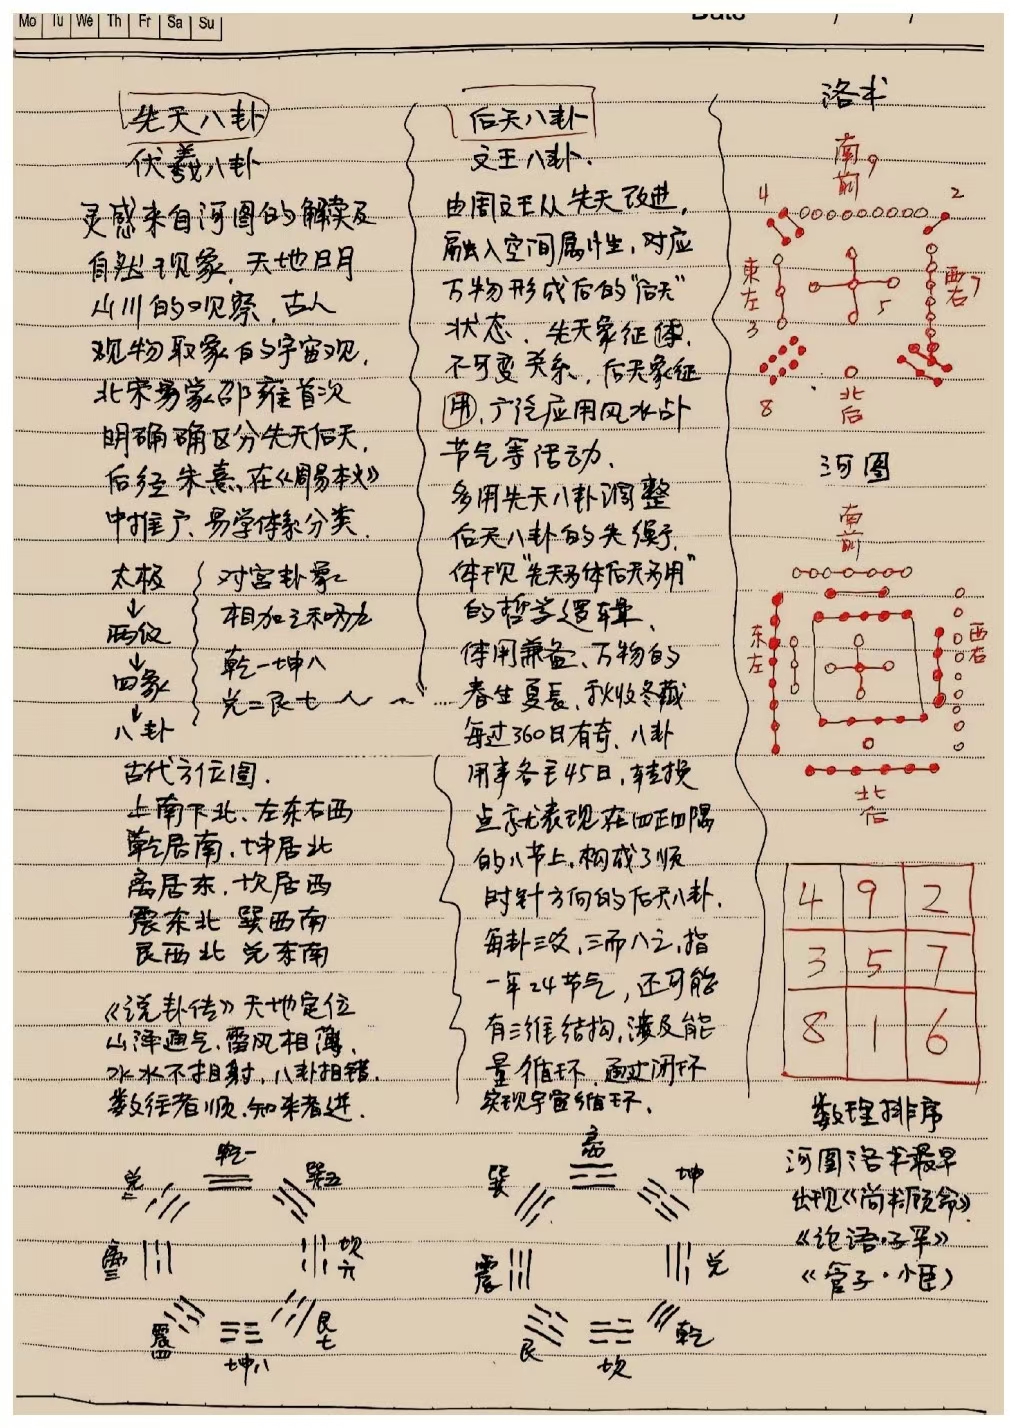 Mo Tu We Th Fr Sa Su
Date / /
先天八卦
伏羲八卦
灵感来自河图的解读及
自然现象、天地日月
山川的观察、古人
观物取象的宇宙观,
北宋易学家邵雍首次
明确确区分先天后天,
后经朱熹、在《周易本义》
中推广、易学体系分类
太极
↓
两仪
↓
四象
↓
八卦
对宫卦象
相加之和为九
乾一坤八
兑二艮七
古代方位图.
上南下北、左东右西
乾居南、坤居北
离居东、坎居西
震东北 巽西南
艮西北 兑东南
《说卦传》天地定位
山泽通气、雷风相薄,
水火不相射,八卦相错,
数往者顺、知来者逆.
乾一
兑二
巽五
离三
坎六
震四
艮七
坤八
后天八卦
文王八卦.
由周文王从先天改进,
融入空间属性,对应
万物形成后的"后天"
状态、先天象征体,
不可变关系、后天象征
用,广泛应用风水占
节气等活动.
多用先天八卦调整
后天八卦的失衡,
体现"先天为体后天为用"
的哲学逻辑、
体用兼备、万物的
春生夏长、秋收冬藏
每过360日有奇、八卦
用事各主45日,转换
点就表现在四正四隅
的八节上,构成了顺
时针方向的后天八卦.
每卦三爻,三而八之,指
一年24节气,还可能
有三维结构,涉及能
量循环、通过闭环
实现宇宙循环.
离
巽
坤
震
兑
艮
乾
坎
洛书
南 9
前
4
2
東
左
3
5
西 7
右
8
北
后
河图
南
前
东
左
西
右
北
后
4 9 2
3 5 7
8 1 6
数理排序
河图洛书最早
出现《尚书顾命》
《论语·子罕》
《管子·小臣》